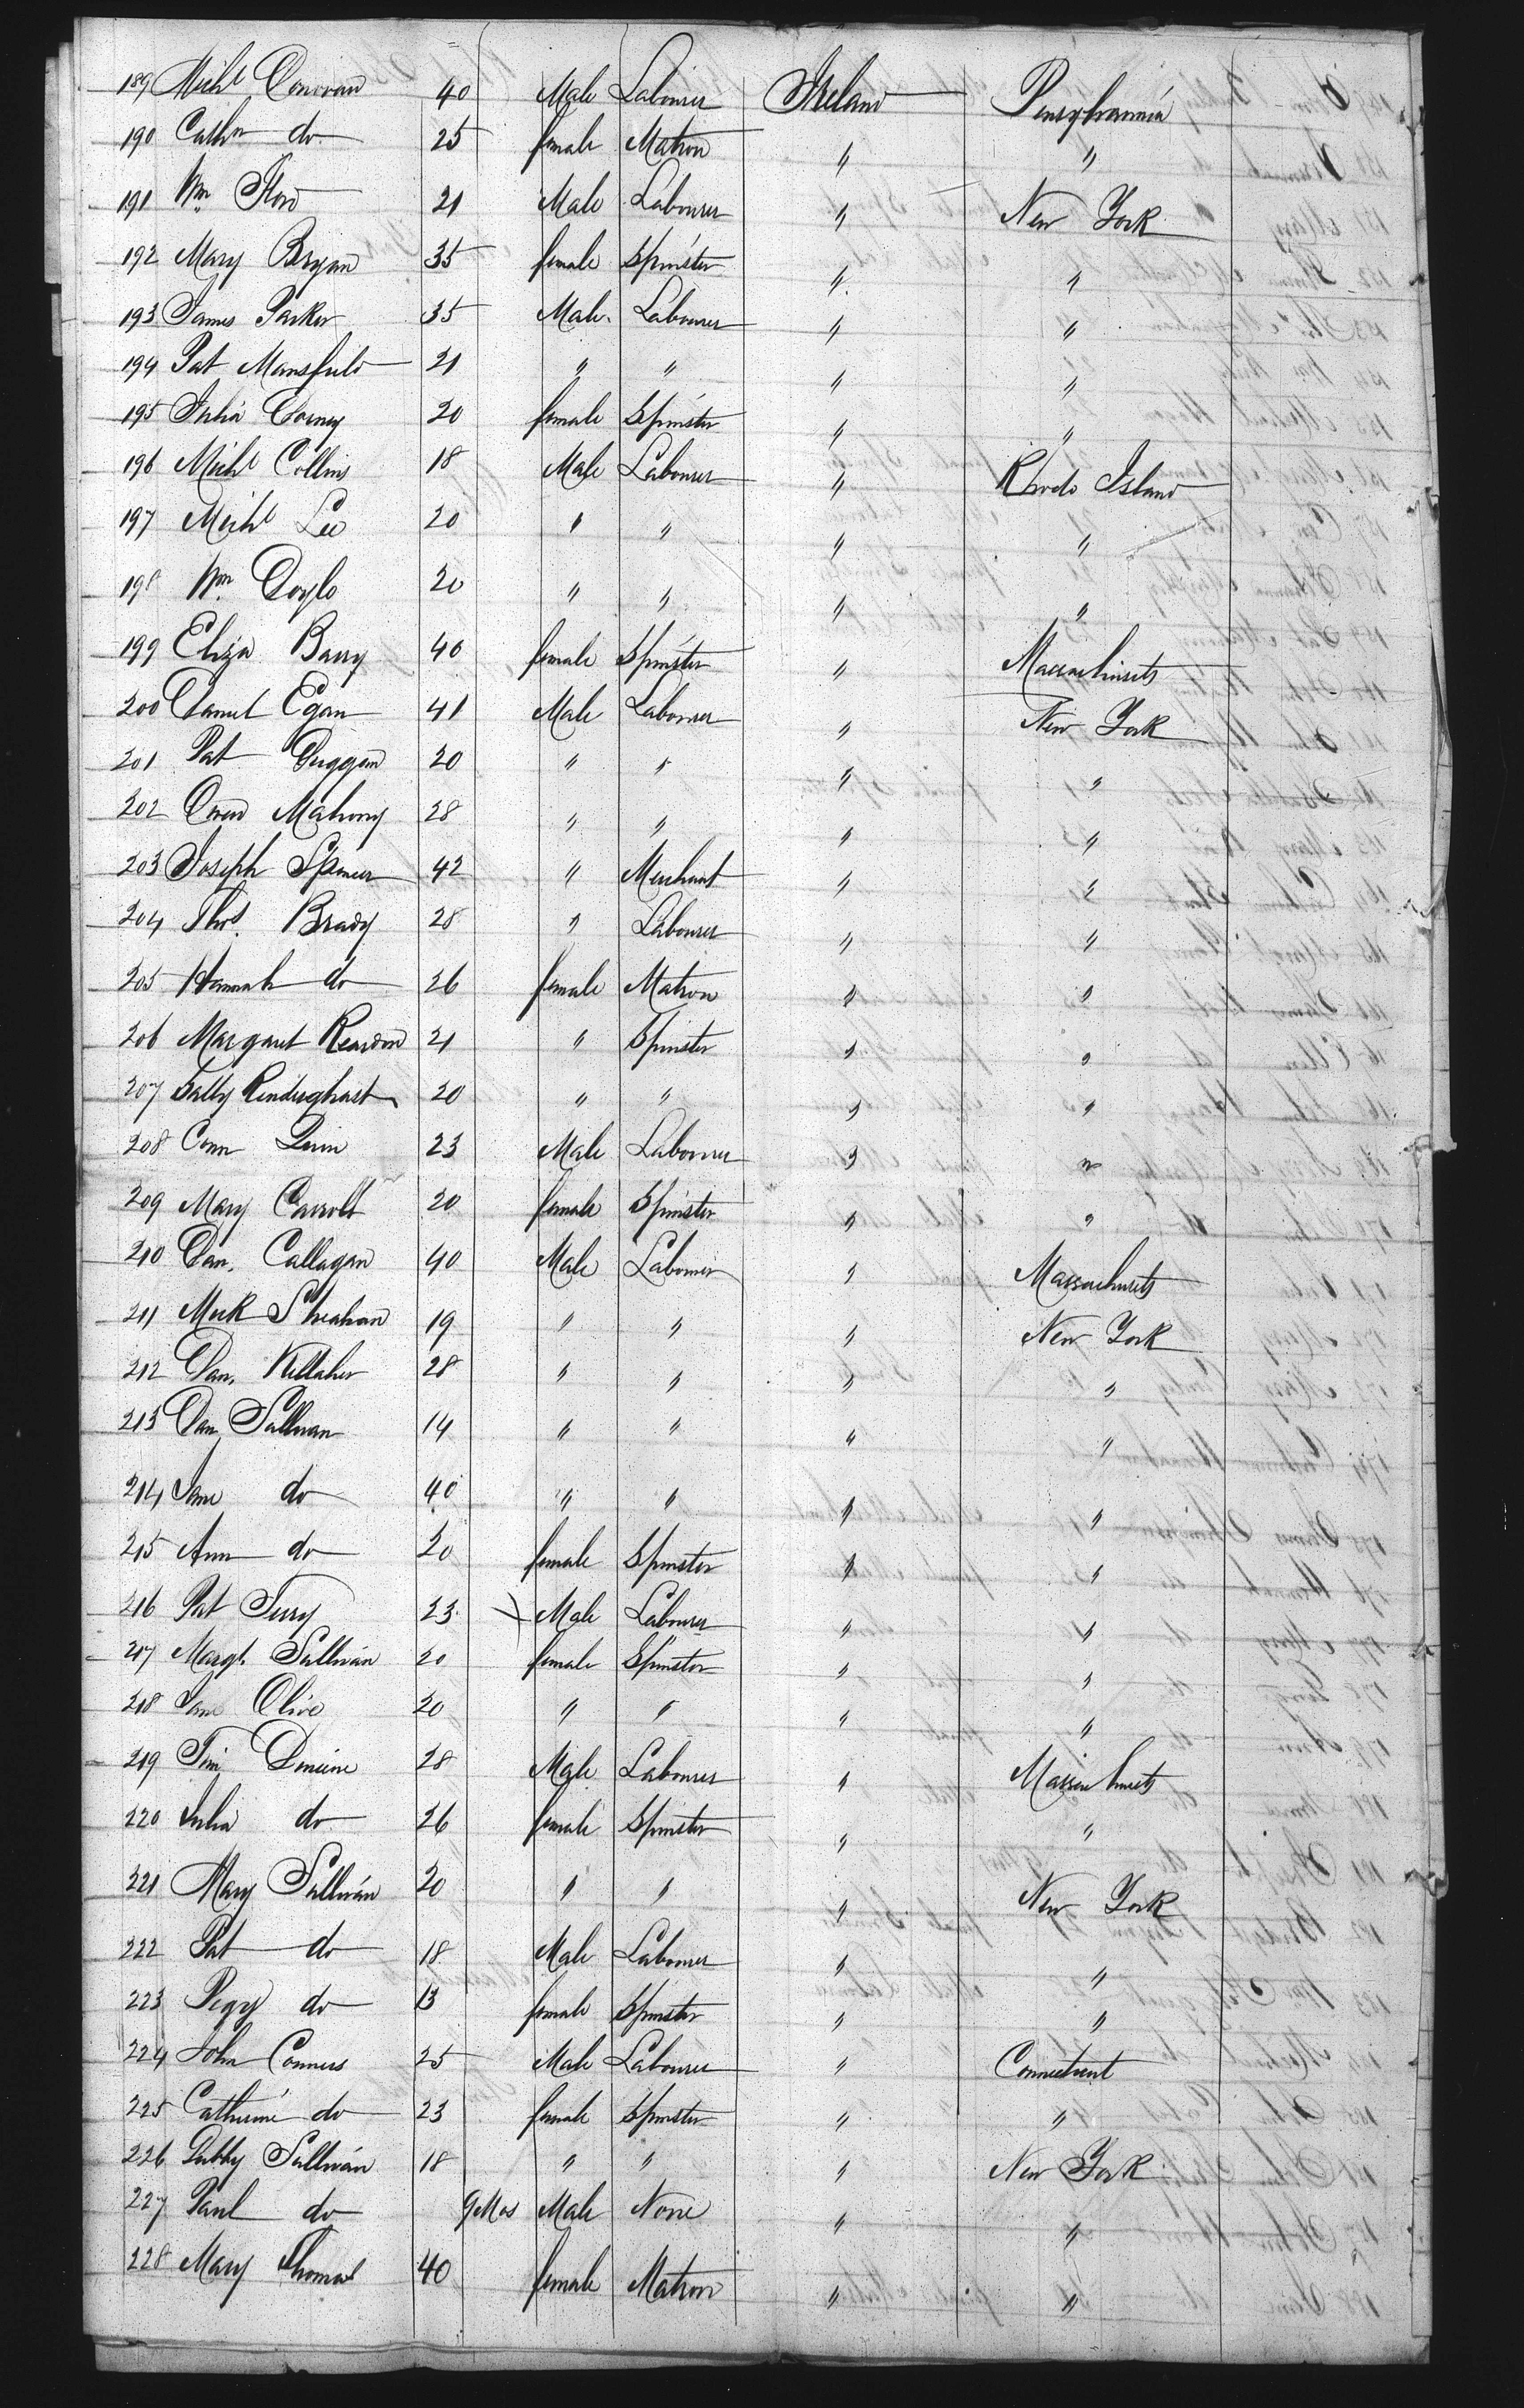 189 Michl Donovan 40 Male Labourer Ireland Pensylvannia
190 Cathn do 25 female Matron " "
191 Wm 21 Male Labourer " New York
192 Mary Bryan 35 female Spinster " "
193 James Parker 35 Male Labourer " "
194 Pat Mansfield 21 " " " "
195 Julia Dorney 20 female Spinster " "
196 Michl Collins 18 Male Labourer " Rhode Island
197 Michl Lee 20 " " " "
198 Wm Doyle 20 " " " "
199 Eliza Barry 40 female Spinster " Massachusets
200 Daniel Egan 41 Male Labourer " New York
201 Pat Duggan 20 " " " "
202 Owen Mahony 28 " " " "
203 Joseph Spencer 42 " Merchant " "
204 Thos. Brady 28 " Labourer " "
205 Hannah do 26 female Matron " "
206 Margaret Reardon 21 " Spinster " "
207 Sally 20 " " " "
208 Conn 23 Male Labourer " "
209 Mary Carroll 20 female Spinster " "
210 Dan. Callagan 40 Male Labourer " Massachusets
211 Mick Sheahan 19 " " " New York
212 Dan. Kellaher 28 " " " "
213 Dan Sullivan 14 " " " "
214 do 40 " " " "
215 Ann do 20 female Spinster " "
216 Pat Terry 23 Male Labourer " "
217 Margt. Sullivan 20 female Spinster " "
218 Jane Olive 20 " " " "
219 Tim 28 Male Labourer " Massachusets
220 Julia do 26 female Spinster " "
221 Mary Sullivan 20 " " " New York
222 Pat do 18 Male Labourer " "
223 Pegy do 13 female Spinster " "
224 John Conners 25 Male Labourer " Connecticut
225 Catherine do 23 female Spinster " "
226 Sullivan 18 " " " New York
227 Paul do 9 Mos Male None " "
228 Mary Thomas 40 female Matron " "